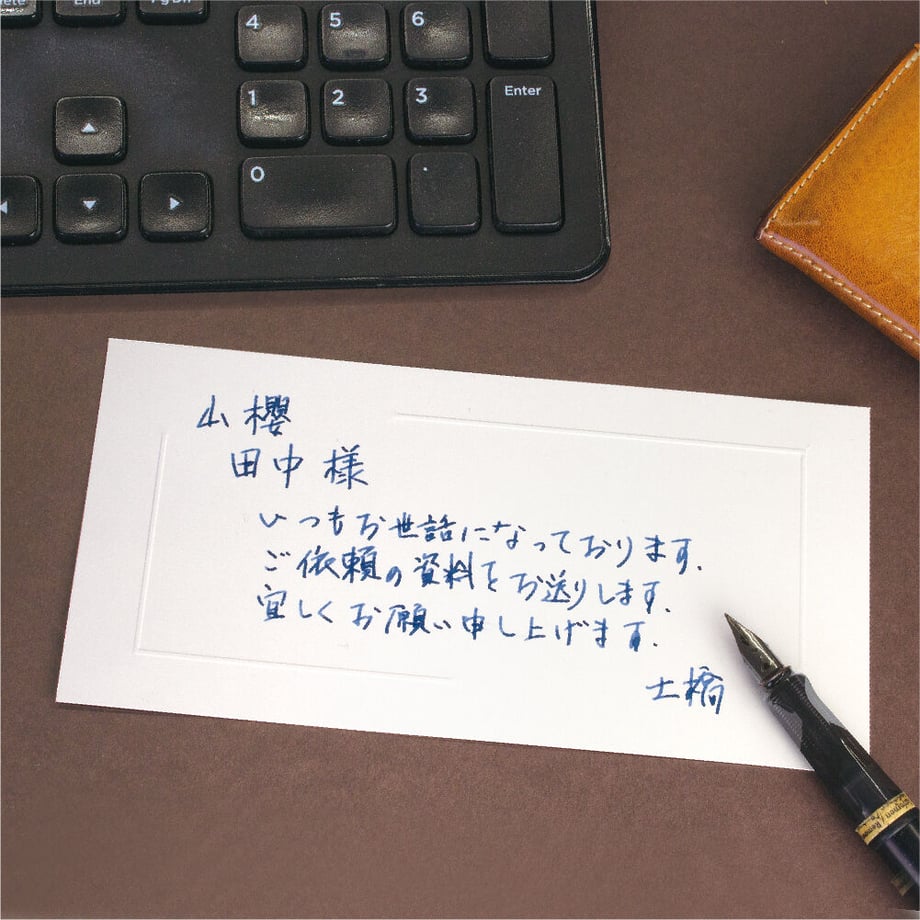 Delete
End
PgDn
4 5 6
1 2 3 Enter
0 .
山櫻
田中様
いつもお世話になっております。
ご依頼の資料をお送りします。
宜しくお願い申し上げます。
土橋